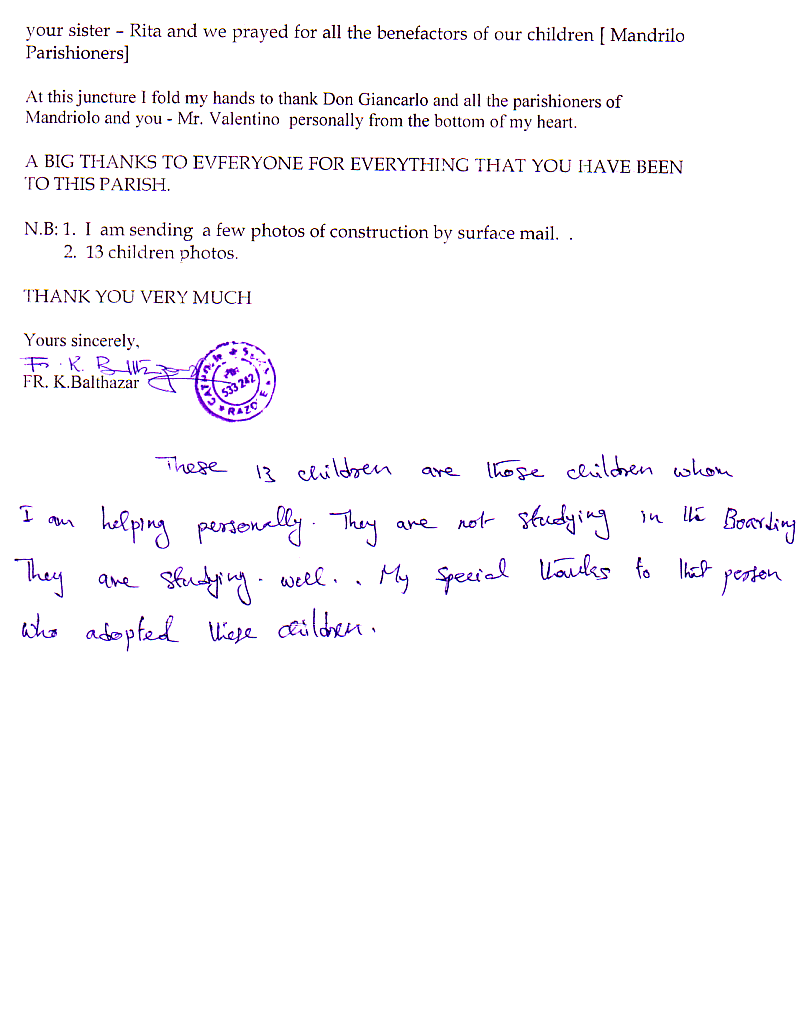 your sister – Rita and we prayed for all the benefactors of our children [ Mandrilo
Parishioners]
At this juncture I fold my hands to thank Don Giancarlo and all the parishioners of
Mandriolo and you - Mr. Valentino personally from the bottom of my heart.
A BIG THANKS TO EVFERYONE FOR EVERYTHING THAT YOU HAVE BEEN
TO THIS PARISH.
N.B: 1. I am sending a few photos of construction by surface mail. .
2. 13 children photos.
THANK YOU VERY MUCH
Yours sincerely,
Fr. K. Balthazar
FR. K.Balthazar
533 242
RAZO
These 13 children are those children whom
I am helping personally. They are not studying in the Boarding
They are studying. well. . My special thanks to that person
who adopted these children.